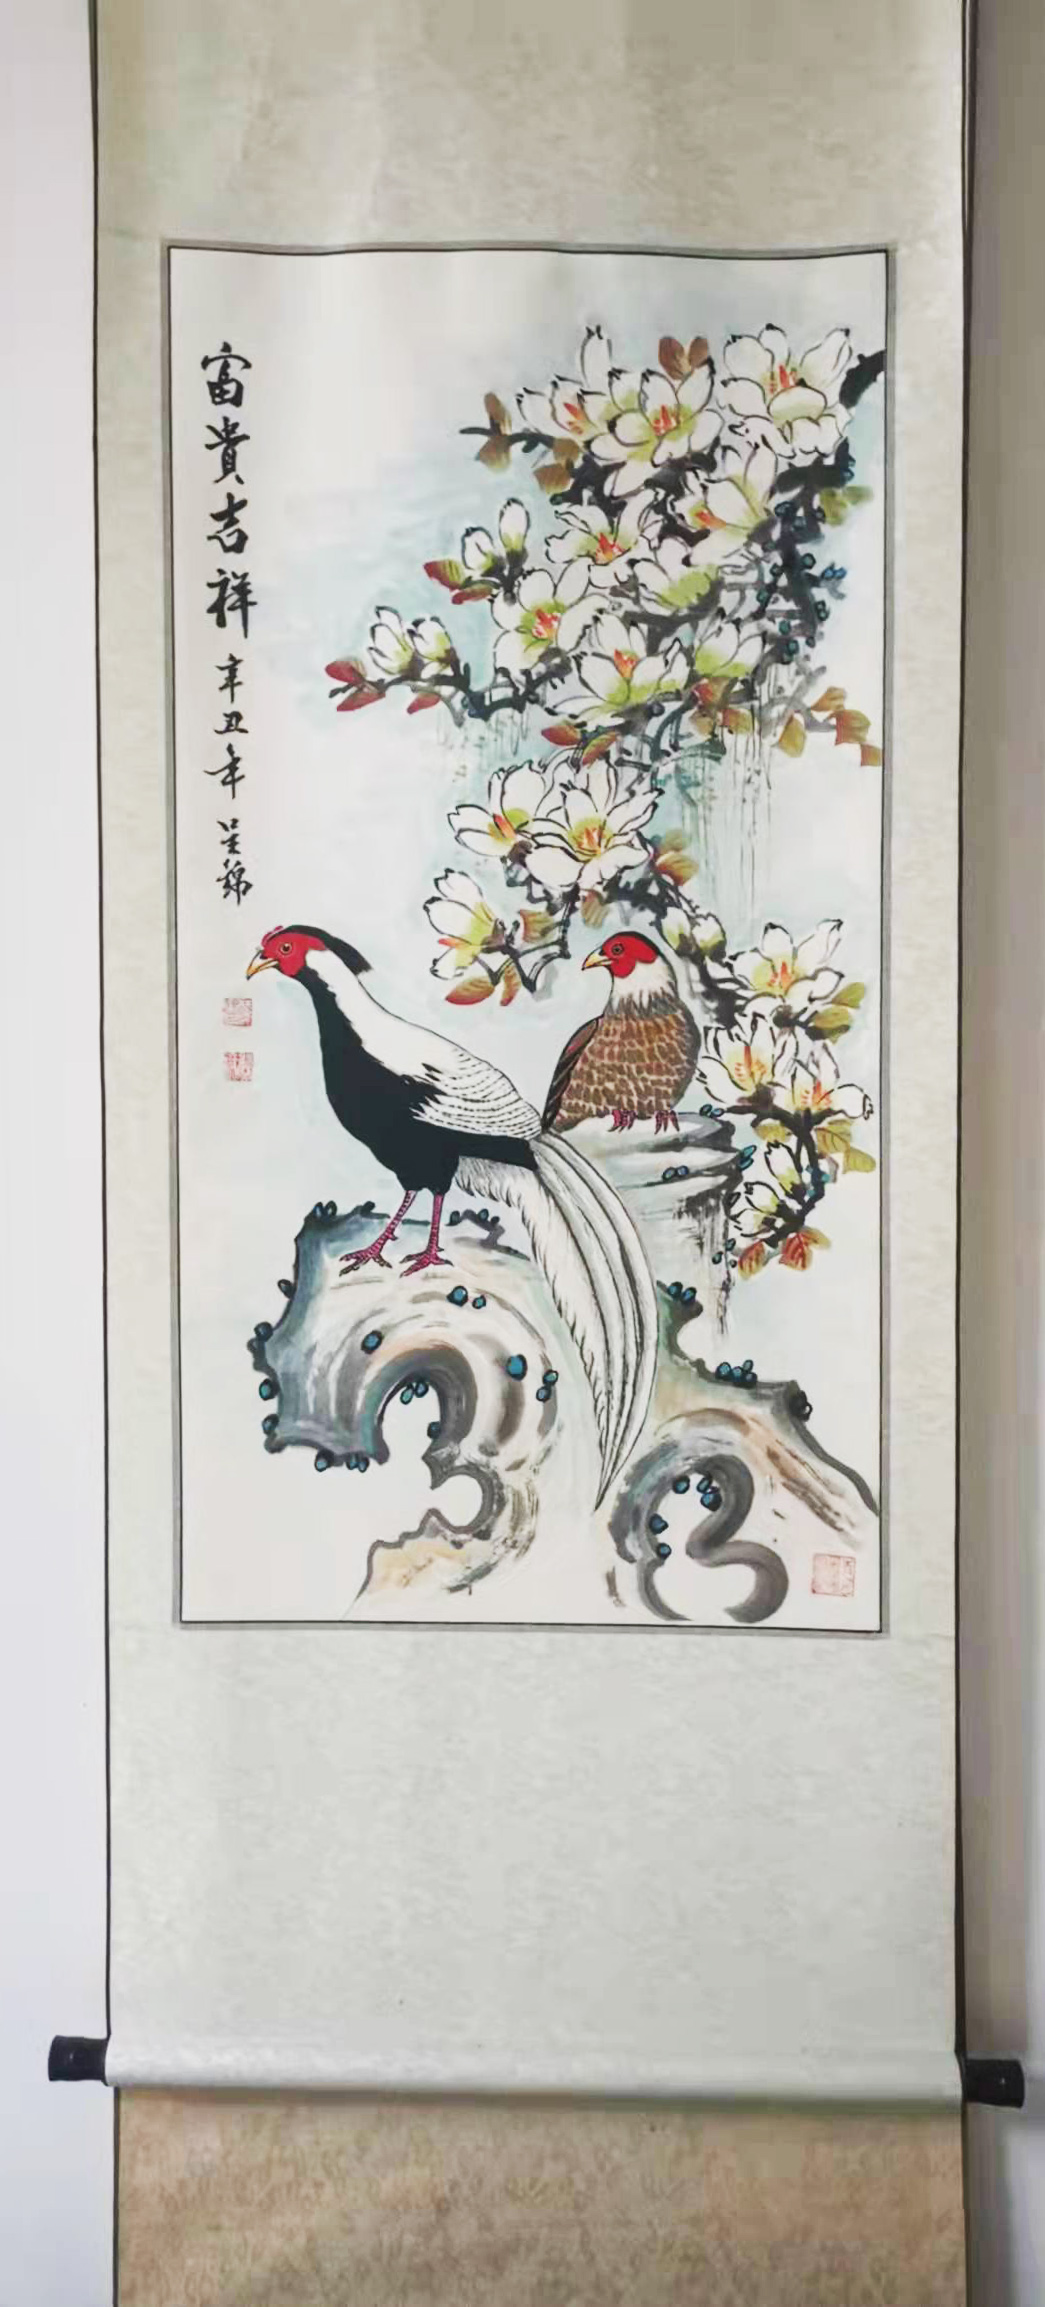 富貴吉祥
辛丑年
呈錦